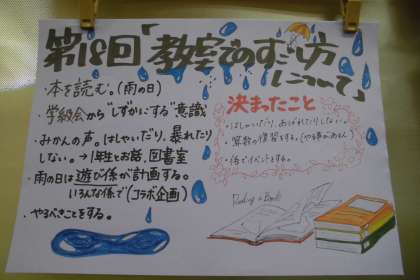 第18回「教室でのすごし方
について」
・本を読む。(雨の日)
・学級会から"しずかにする"意識
・みかんの声。はしゃいだり、暴れたり
しない。→1年生とお話、図書室
・雨の日は遊び係が計画する。
いろんな係で(コラボ企画)
・やるべきことをする。
決まったこと
・はしゃいだり、あばれたりしない。
・算数の復習をする。
・係でイベントとする。
Reading a Book